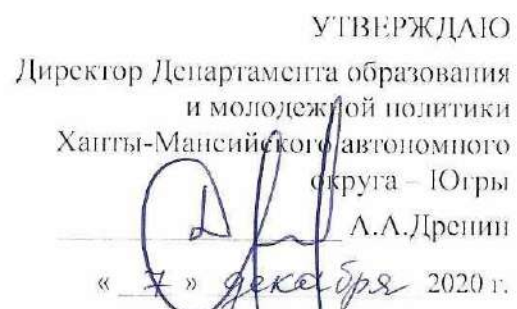 УТВЕРЖДАЮ
Директор Департамента образования
и молодежной политики
Ханты-Мансийского автономного
округа – Югры
А.А.Дренин
« 7 » декабря 2020 г.